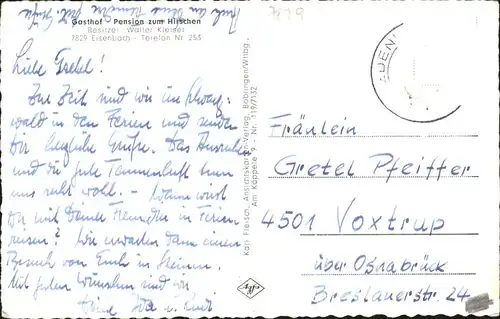 Gasthof - Pension zum Hirschen
Besitzer Walter Kleiner
7829 Eisenbach - Telefon Nr 255
Liebe Gretel!
Zur Zeit sind wir im Schwarz-
wald in den Ferien und senden
Dir herzliche Grüße. Das Ausruhen
und die gute Tannenluft tun
uns recht wohl. - Wann wirst
Du mit Deiner Freundin in Ferien
reisen? Wir erwarten dann einen
Besuch von Euch in
Mit guten Wünschen sind wir
Deine Ida u. Rudi
Karl Fleisch, Ansichtskarten-Verlag, Böblingen/Wttbg.
Am Käppele 9 - Nr. 119/7132
Agfa
Fräulein
Gretel Pfeiffer
4501 Voxtrup
über Osnabrück
Breslauerstr. 24